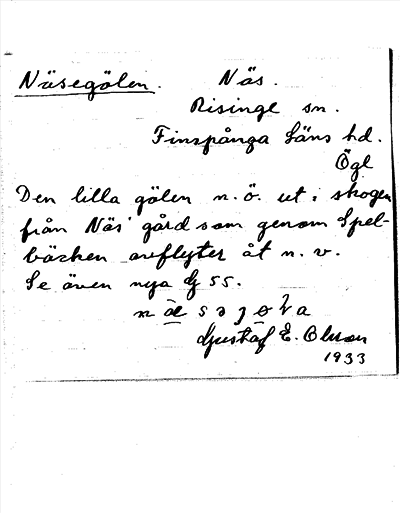 Näsegölen. Näs.
Risinge sn.
Finspånga läns hd.
Ögl
Den lilla gölen n.ö. ut i skogen
från Näs' gård som genom Spel-
bäcken avflyter åt n. v.
Se även nya Gj 55.
Gustaf E. Olsson
1933